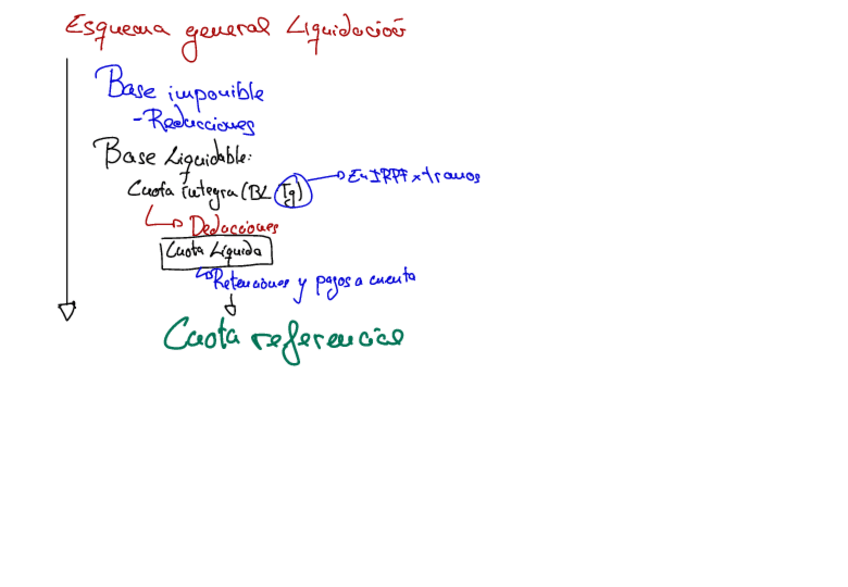 Esquema general Liquidación
Base imponible
- Reducciones
Base Liquidable:
Cuota íntegra (BL Tg) → En IRPF x tramos
Deducciones
Cuota Líquida
Retenciones y pagos a cuenta
Cuota referencial